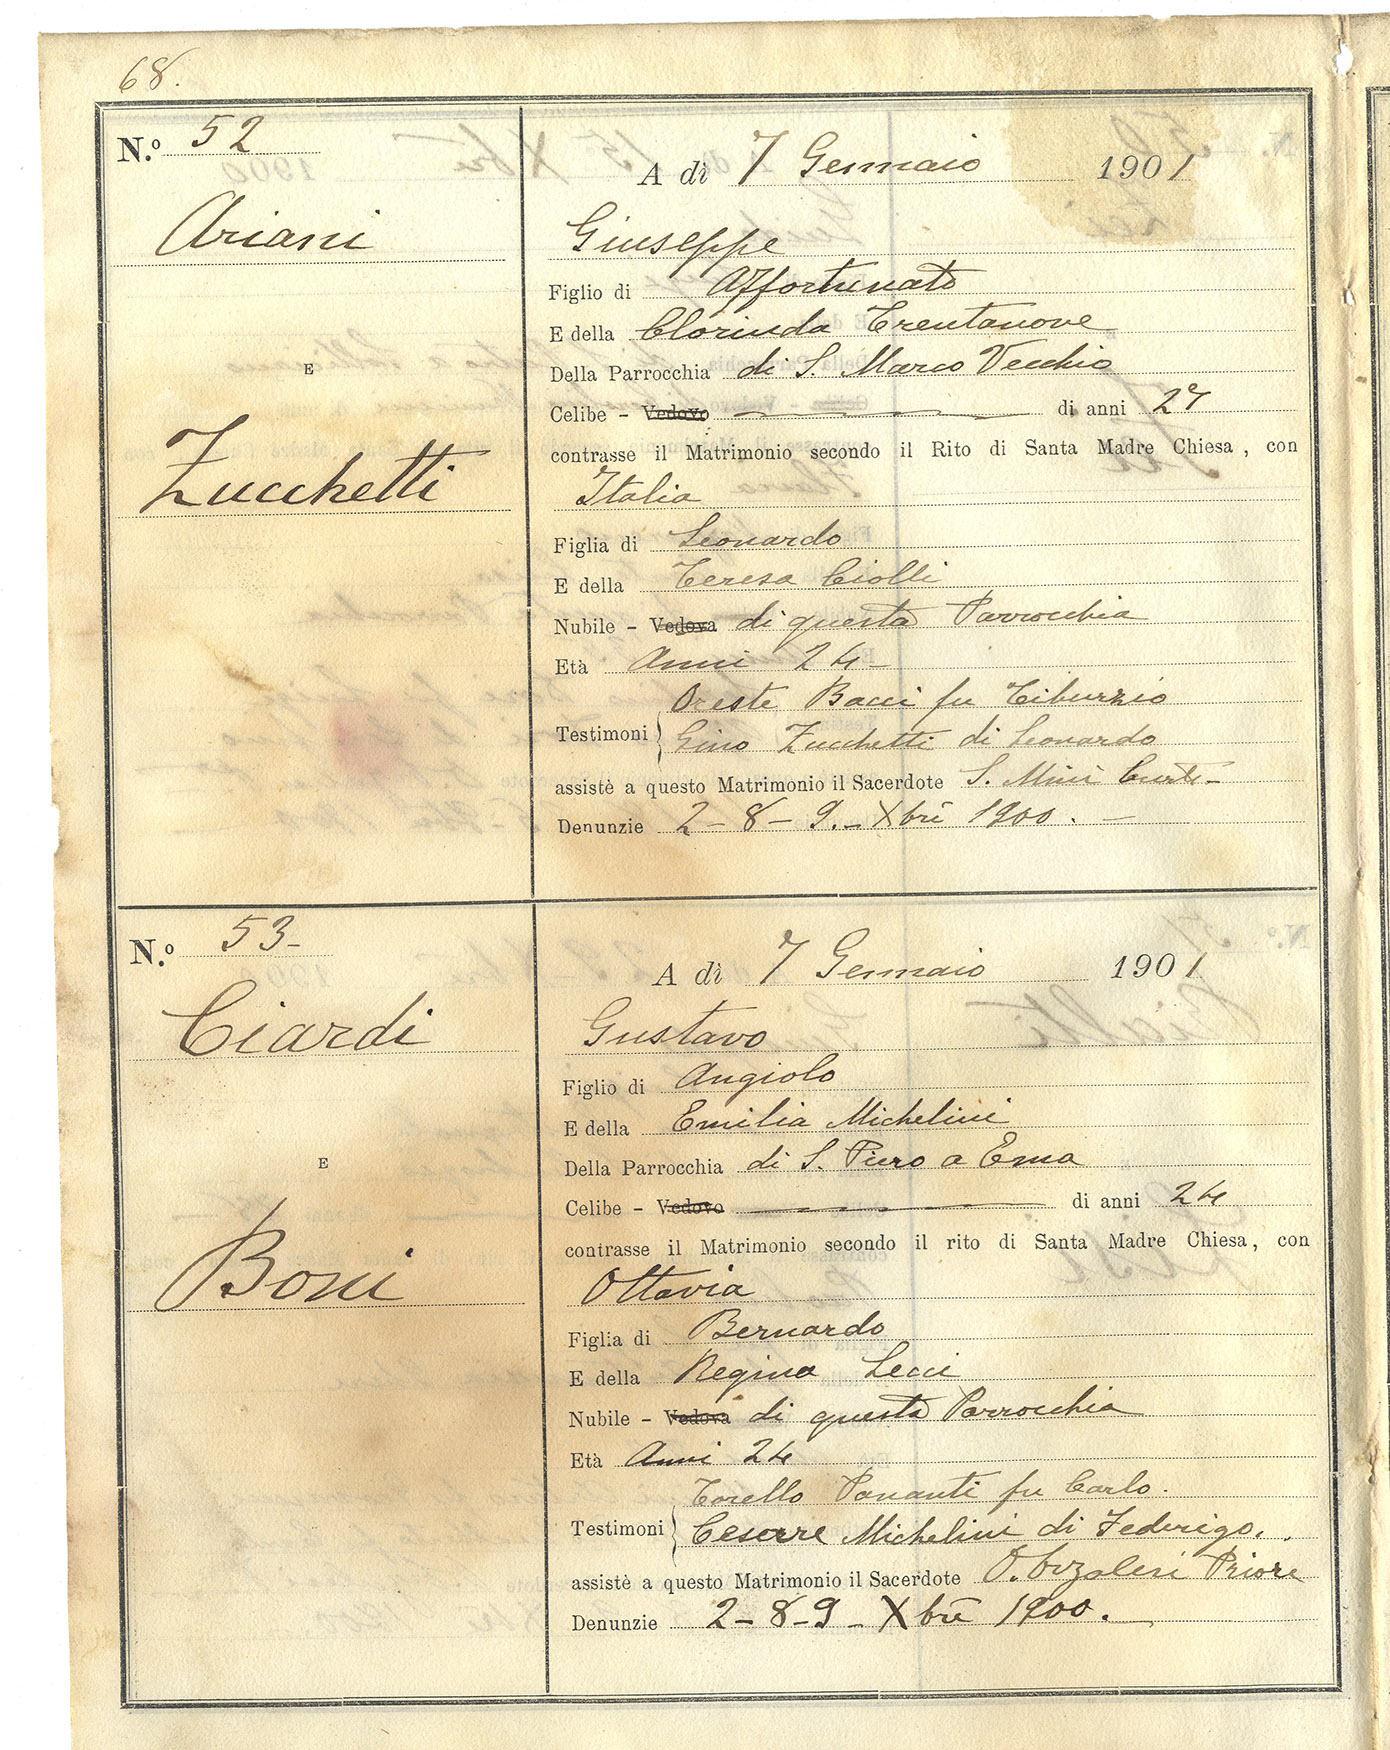 68.
N.º 52
A dì 7 Gennaio 1901
Ariani
Giuseppe
Figlio di Affortunato
E della Clorinda Trentanove
Della Parrocchia di S. Marco Vecchio
E
Celibe - Vedovo di anni 27
contrasse il Matrimonio secondo il Rito di Santa Madre Chiesa, con
Zucchetti
Italia
Figlia di Leonardo
E della Teresa Ciolli
Nubile - Vedova di questa Parrocchia
Età Anni 24-
Oreste Bacci fu Tiburzio
Testimoni Gino Zucchetti di Leonardo
assistè a questo Matrimonio il Sacerdote S. Mini
Denunzie 2-8-9.- Xbre 1900. -
N.º 53-
A dì 7 Gennaio 1901
Ciardi
Gustavo
Figlio di Angiolo
E della Emilia Michelini
E
Della Parrocchia di S. Piero a Ema
Celibe - Vedovo di anni 24
contrasse il Matrimonio secondo il rito di Santa Madre Chiesa, con
Boni
Ottavia
Figlia di Bernardo
E della Regina Lecci
Nubile - Vedova di questa Parrocchia
Età Anni 24
Torello Pananti fu Carlo.
Testimoni Cesare Michelini di Federigo.
assistè a questo Matrimonio il Sacerdote Priore
Denunzie 2-8-9- Xbre 1900.